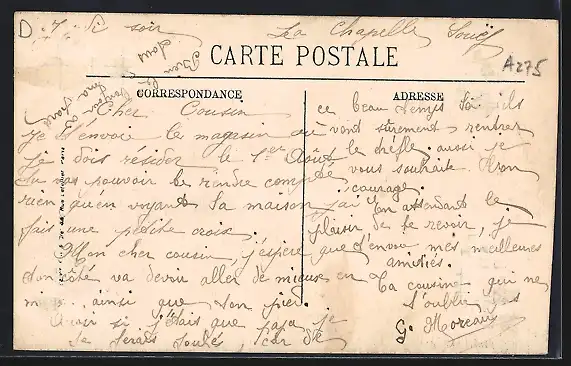 D
La Chapelle Souëf
Bien
A275
CARTE POSTALE
CORRESPONDANCE
ADRESSE
Cher Cousin
Je t'envoie le magasin où
je dois résider le 1er Août
Tu vas pouvoir te rendre compte
rien qu'en voyant la maison j'ai
fait une petite croix.
Mon cher cousin, j'espère que
ton côté va devoir aller de mieux en
ainsi que ton pied.
si j'étais que papa
je serais
ce beau temps ils
vont sûrement rentrer
le trèfle; aussi je
vous souhaite bon
courage.
En attendant le
plaisir de te revoir, je
t'envoie mes meilleures
amitiés.
Ta cousine qui ne
t'oublie pas
G. Moreau